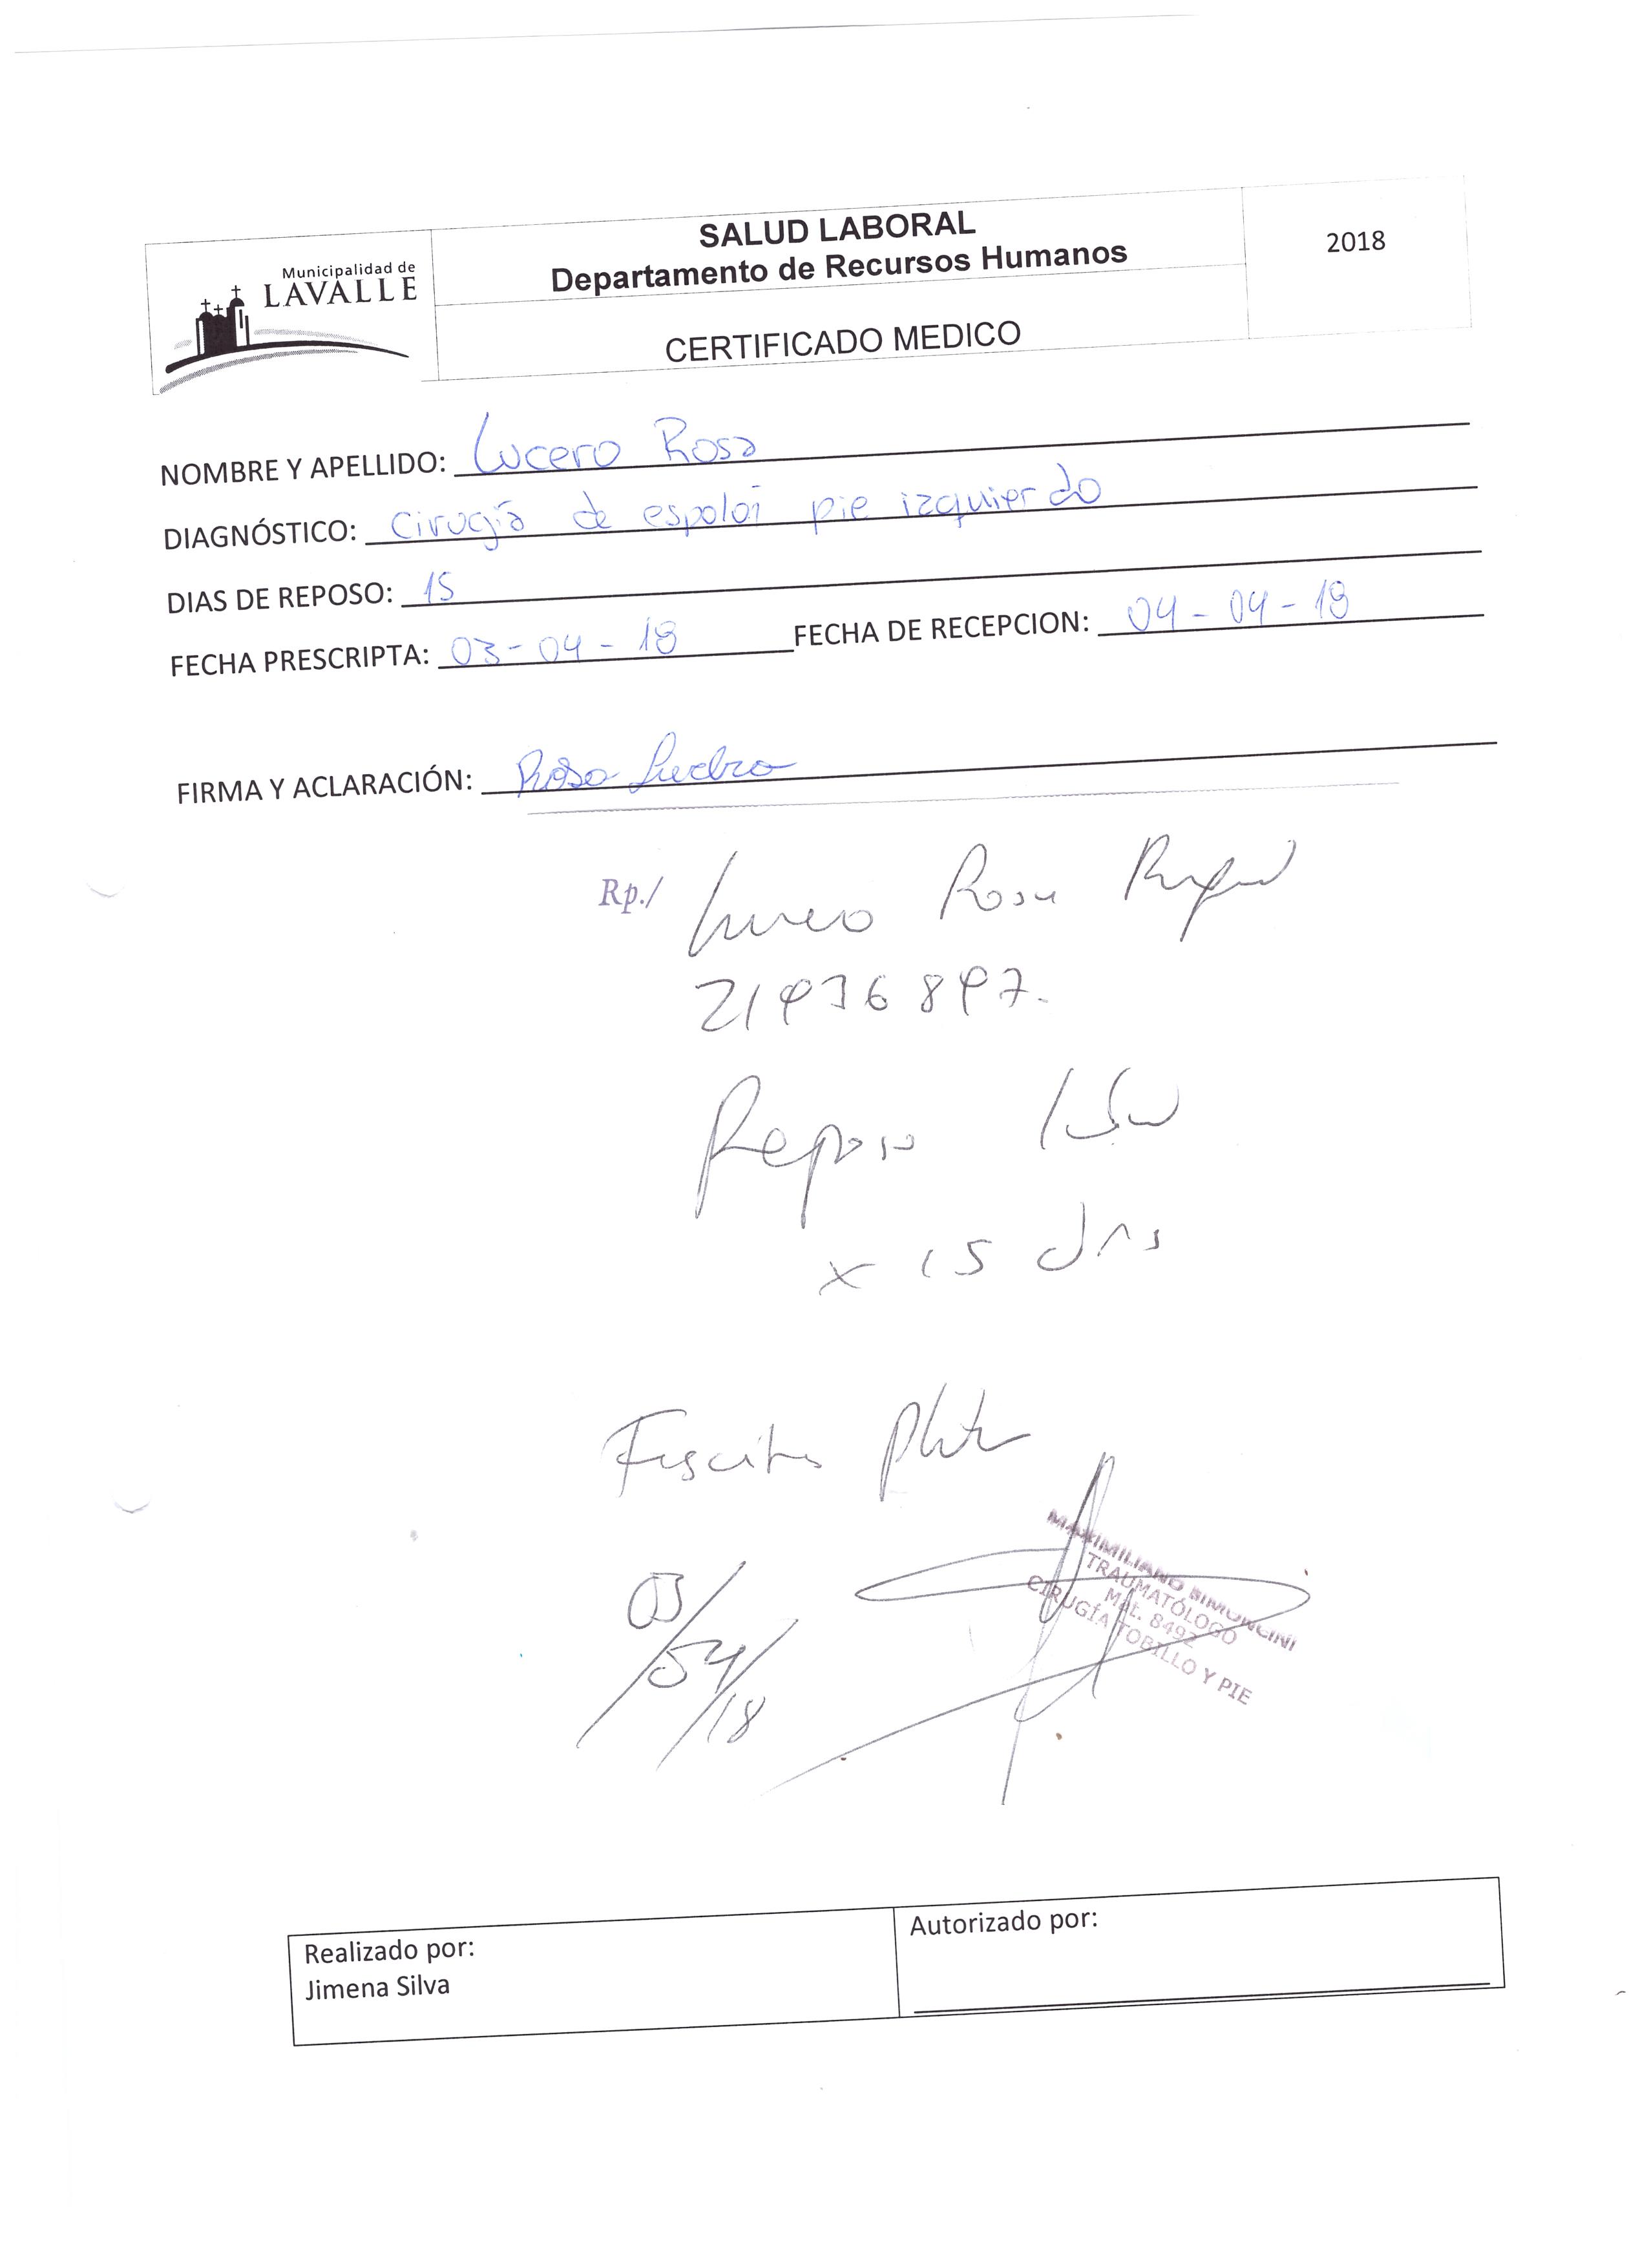 Municipalidad de
LAVALLE
SALUD LABORAL
Departamento de Recursos Humanos
2018
CERTIFICADO MEDICO
NOMBRE Y APELLIDO: Lucero Rosa
DIAGNÓSTICO: Cirugía de espoloń pie izquierdo
DIAS DE REPOSO: 15
FECHA PRESCRIPTA: 03-04-18 FECHA DE RECEPCION: 04-04-18
FIRMA Y ACLARACIÓN: Rosa Lucero
Rp./ Lucero Rosa
Reposo
x 15 dias
Fascitis Plantar
03/04/18
MAXIMILIANO SIMONCINI
TRAUMATÓLOGO
Mat. 8492
CIRUGÍA TOBILLO Y PIE
Realizado por:
Jimena Silva
Autorizado por: